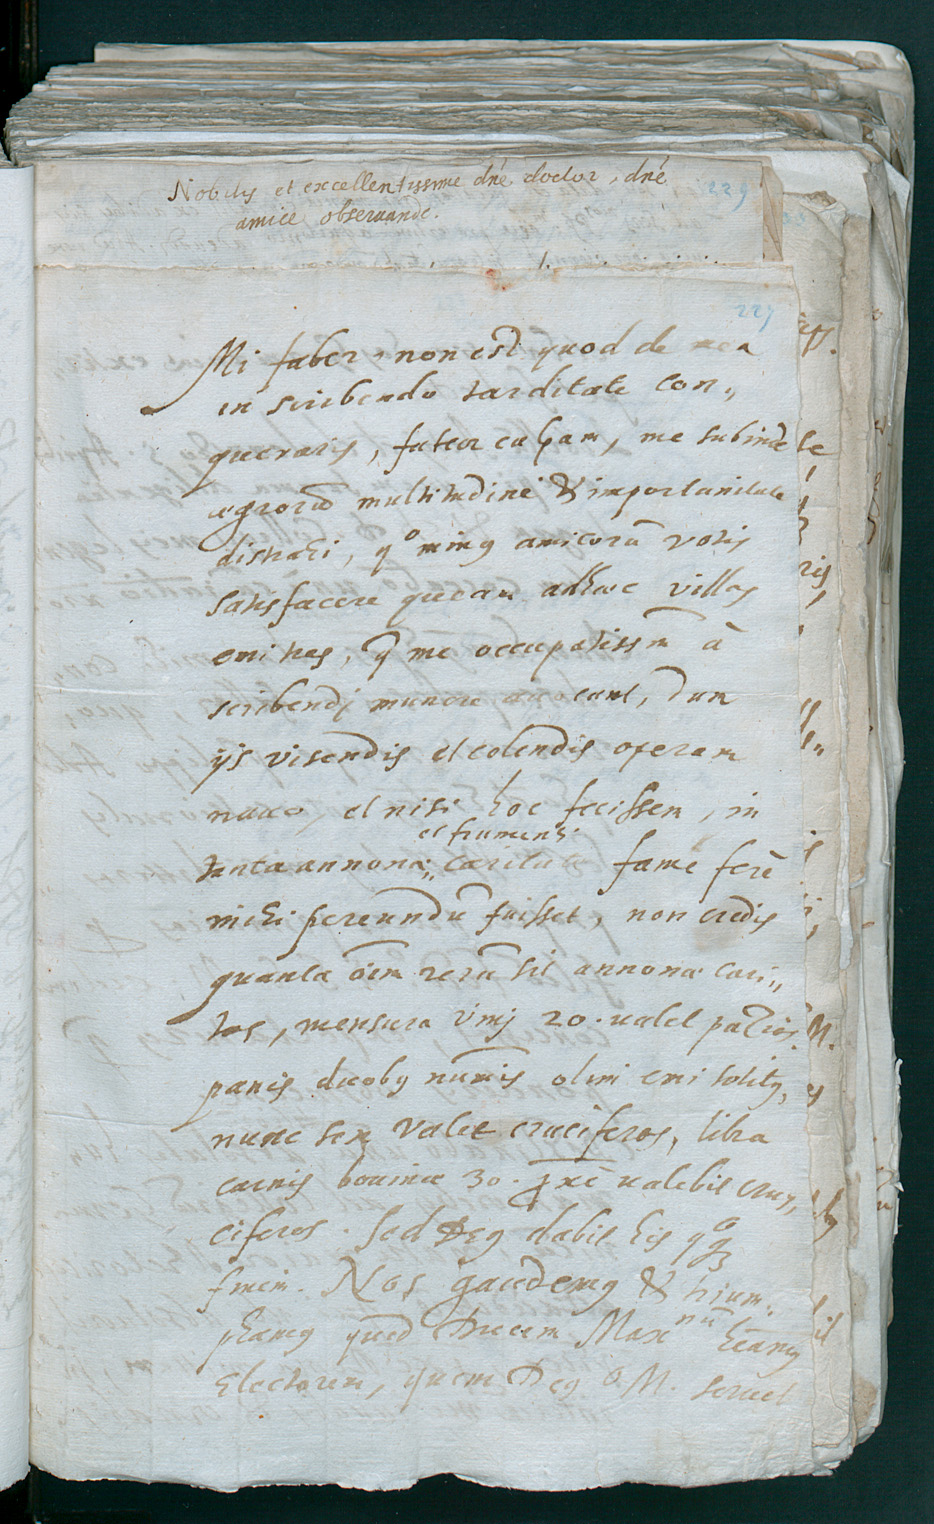 Nobilis et excellentissime dn̄e doctor, dn̄e
229
amice observande.
227
Mi faber, non est quod de mea
in scribendo tarditate con„
queraris, fateor culpam, me subinde
ægrorū multitudine & importunitate
distrahi, qo minꝰ amicorū votis
satisfacere queam adhuc villas
emi tres, q̄ me occupatissm̄ à
scribendj munere avocant, dum
ijs visendis et colendis operam
navo, et nisi hoc fecissem, in
et frumenti
tanta annonæ caritate fame ferè
mihi pereundū fuisset, non credis
quanta oīm rerū sit annonæ cari„
tas, mensura vinj 20. valet
panis duobꝰ numis olim emi solitꝰ,
nunc sex valet cruciferos, libra
carnis bovinæ 30. valebit cru„
ciferos. Sed Deꝰ dabit his qq̄
finem. Nos gaudemꝰ & trium„
phamꝰ quod Ducem Maxnū heamꝰ
Electorem, quem Deꝰ O.M. servet